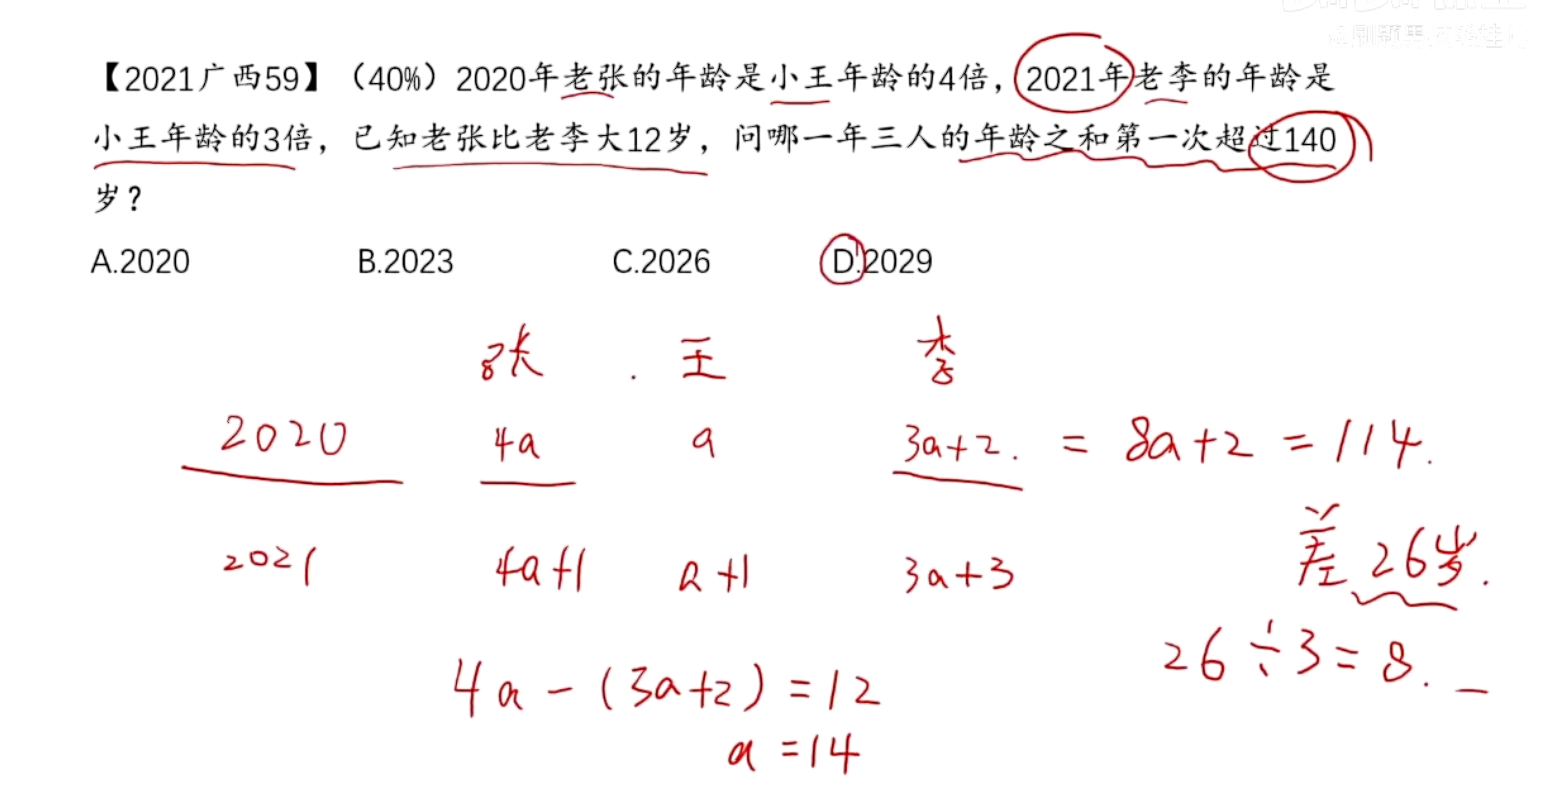 【2021广西59】（40%）2020年老张的年龄是小王年龄的4倍，2021年老李的年龄是
小王年龄的3倍，已知老张比老李大12岁，问哪一年三人的年龄之和第一次超过140
岁？
A.2020 B.2023 C.2026 D.2029
张 王 李
2020 4a a 3a+2. = 8a+2 = 114.
差26岁.
2021 4a+1 a+1 3a+3
26÷3=8.
4a-(3a+2)=12
a=14